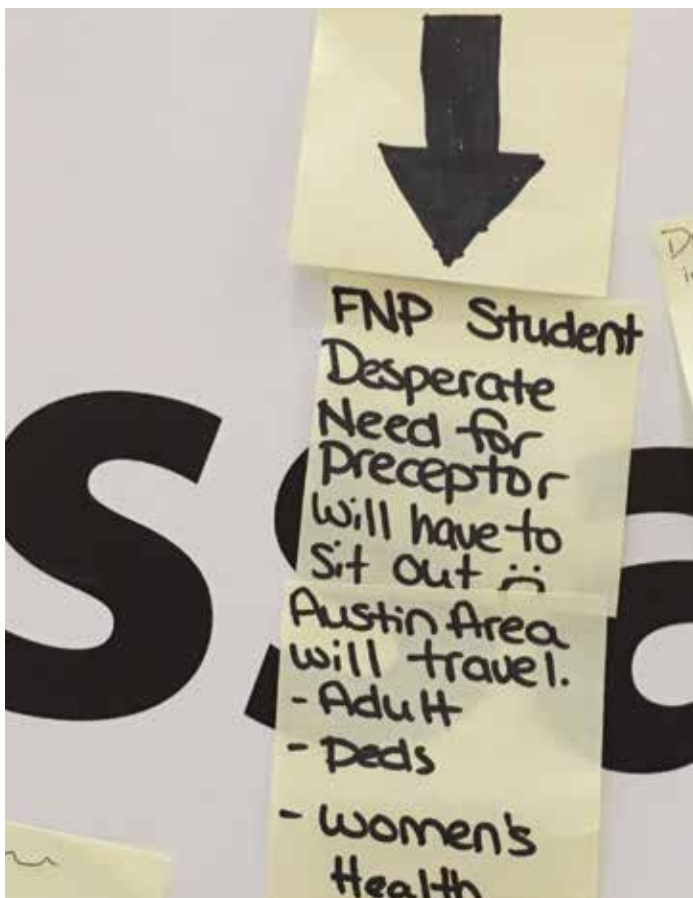 FNP Student
Desperate
Need for
preceptor
will have to
Sit out :(
Austin Area
will travel.
- Adult
- Peds
- Women's
Health